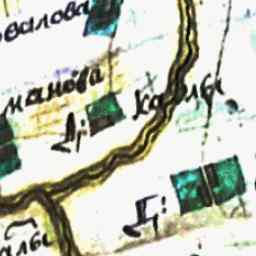 овалова
манова
Д: Карлы
Д:
алы